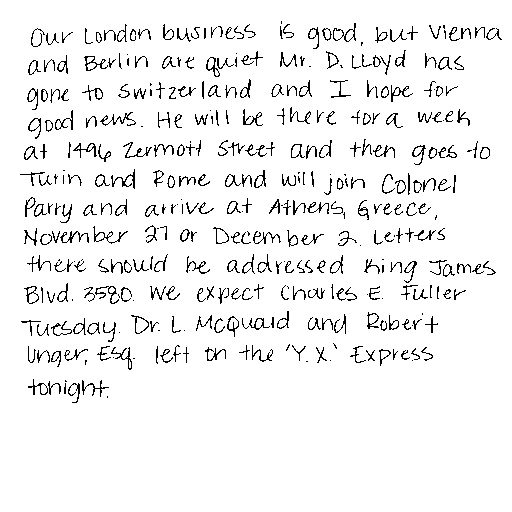 Our London business is good, but Vienna
and Berlin are quiet Mr. D. LLoyd has
gone to Switzerland and I hope for
good news. He will be there for a week
at 1496 Zermott Street and then goes to
Turin and Rome and will join Colonel
Parry and arrive at Athens, Greece,
November 27 or December 2. Letters
there should be addressed King James
Blvd. 3580. We expect Charles E. Fuller
Tuesday. Dr. L. McQuaid and Robert
Unger, Esq. left on the 'Y.X.' Express
tonight.